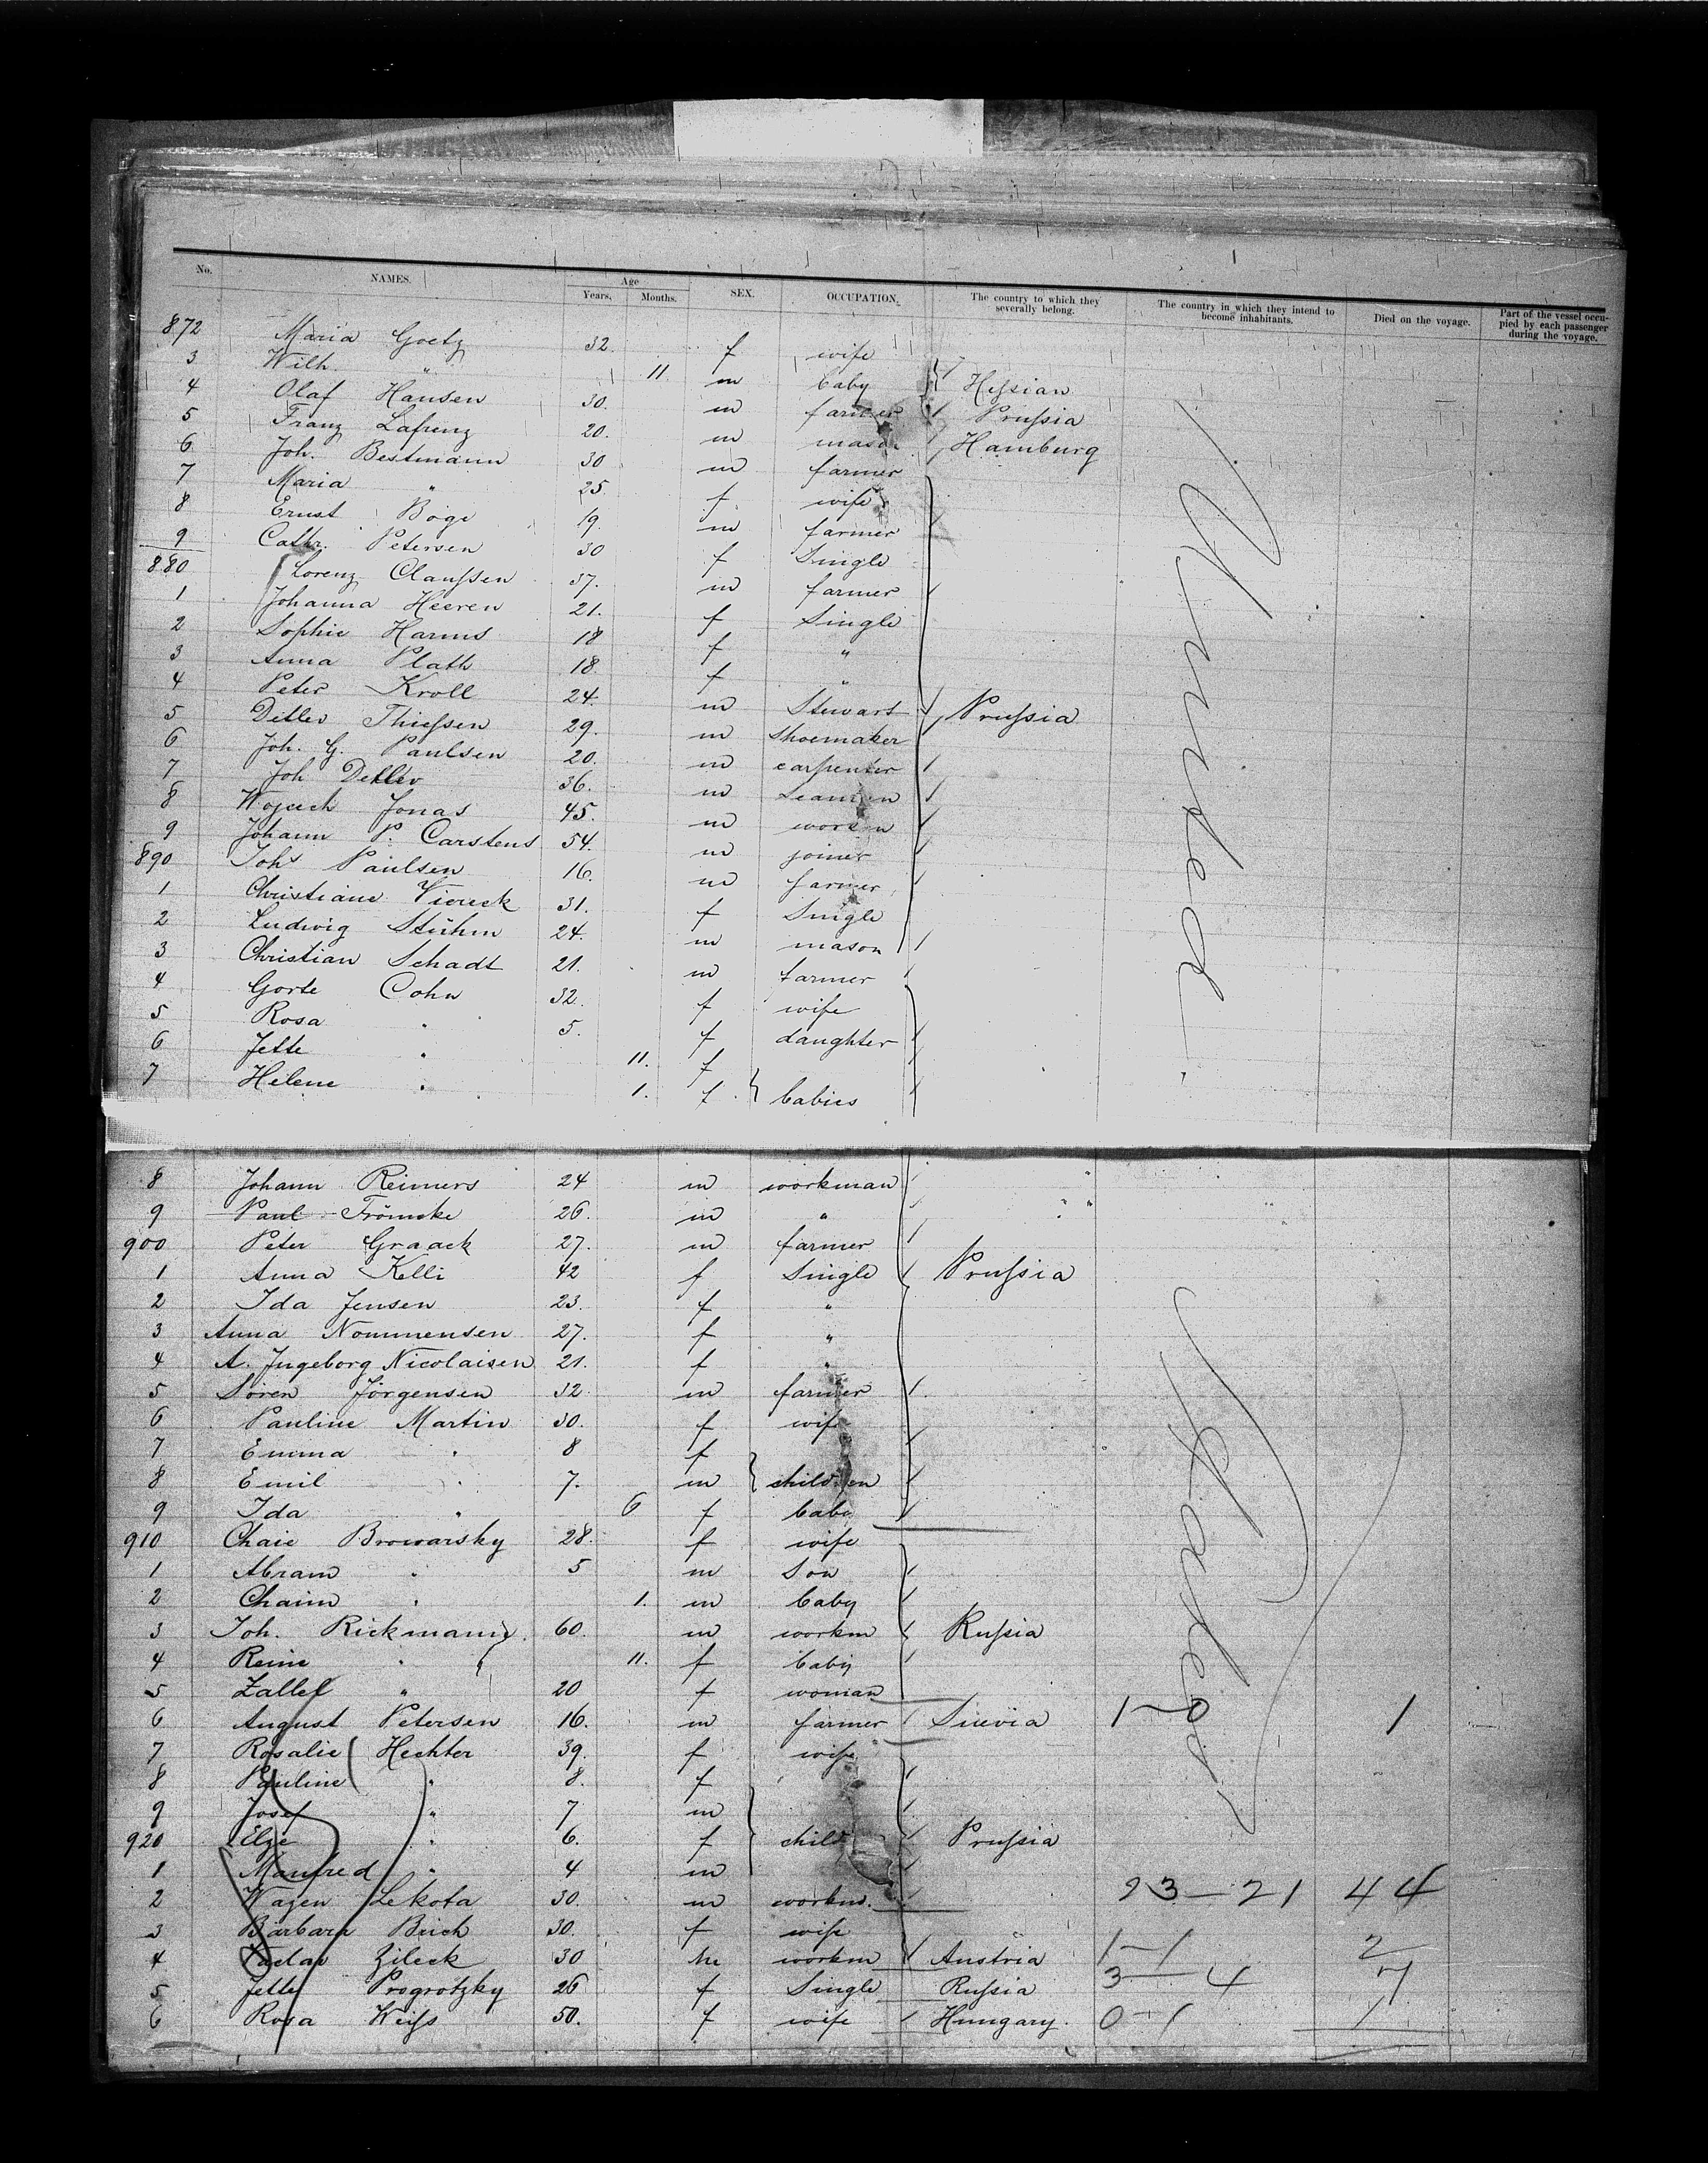 No. NAMES. Age Years. Months. SEX. OCCUPATION. The country to which they severally belong. The country in which they intend to become inhabitants. Died on the voyage. Part of the vessel occupied by each passenger during the voyage.
872 Maria Goetz 32. f wife
3 Wilh. " 11. m baby Heſsian
4 Olaf Hansen 30. m farmer Pruſsia
5 Franz Lafrenz 20. m mason Hamburg
6 Joh. Bestmann 30 m farmer
7 Maria " 25. f wife
8 Ernst Boge 19. m farmer
9 Cathr. Petersen 30 f Single
880 Lorenz Clauſsen 37. m farmer
1 Johanna Heeren 21. f Single
2 Sophie Harms 18 f "
3 Anna Plath 18. f "
4 Peter Kroll 24. m Stewart Pruſsia
5 Detlev Thieſsen 29. m shoemaker
6 Joh. G. Paulsen 20. m carpenter
7 Joh Detlev 36. m Seaman
8 Wojcech Jonas 45. m workm
9 Johann P. Carstens 54. m joiner
890 Johs Paulsen 16. m farmer
1 Christiane Viereck 31. f Single
2 Ludwig Stühm 24. m mason
3 Christian Schadt 21. m farmer
4 Gorte Cohn 32. f wife
5 Rosa " 5. f daughter
6 Jette " 11. f
7 Helene " 1. f babies
8 Johann Reimers 24 m workman "
9 Paul Frömcke 26. m " " "
900 Peter Graack 27. m farmer
1 Anna Kelli 42 f Single Pruſsia
2 Ida Jensen 23. f "
3 Anna Nommensen 27. f "
4 A. Ingeborg Nicolaisen 21. f "
5 Sören Jörgensen 32. m farmer
6 Pauline Martin 30. f wife
7 Emma " 8 f
8 Emil " 7. m children
9 Ida " 6 f baby
910 Chaie Browarsky 28. f wife
1 Abram " 5 m Son
2 Chaim " 1. m baby
3 Joh. Rickmann 60. m workm Ruſsia
4 Reine " 11. f baby
5 Zallel " 20 f woman
6 August Petersen 16. m farmer 1-0 1
7 Rosalie Hechter 39. f wife
8 Pauline " 8. f
9 Josef " 7 m
920 Elze " 6. f child Pruſsia
1 Manfred " 4 m
2 Wazen Lekota 30. m workm. 23-21 44
3 Barbara 30. f wife
4 Zileck 30 M workm Austria 1-1 2
5 Jette Progrotzky 26 f Single Ruſsia 3-4 7
6 Rosa Weiſs 50. f wife Hungary. 0-1 1
United States